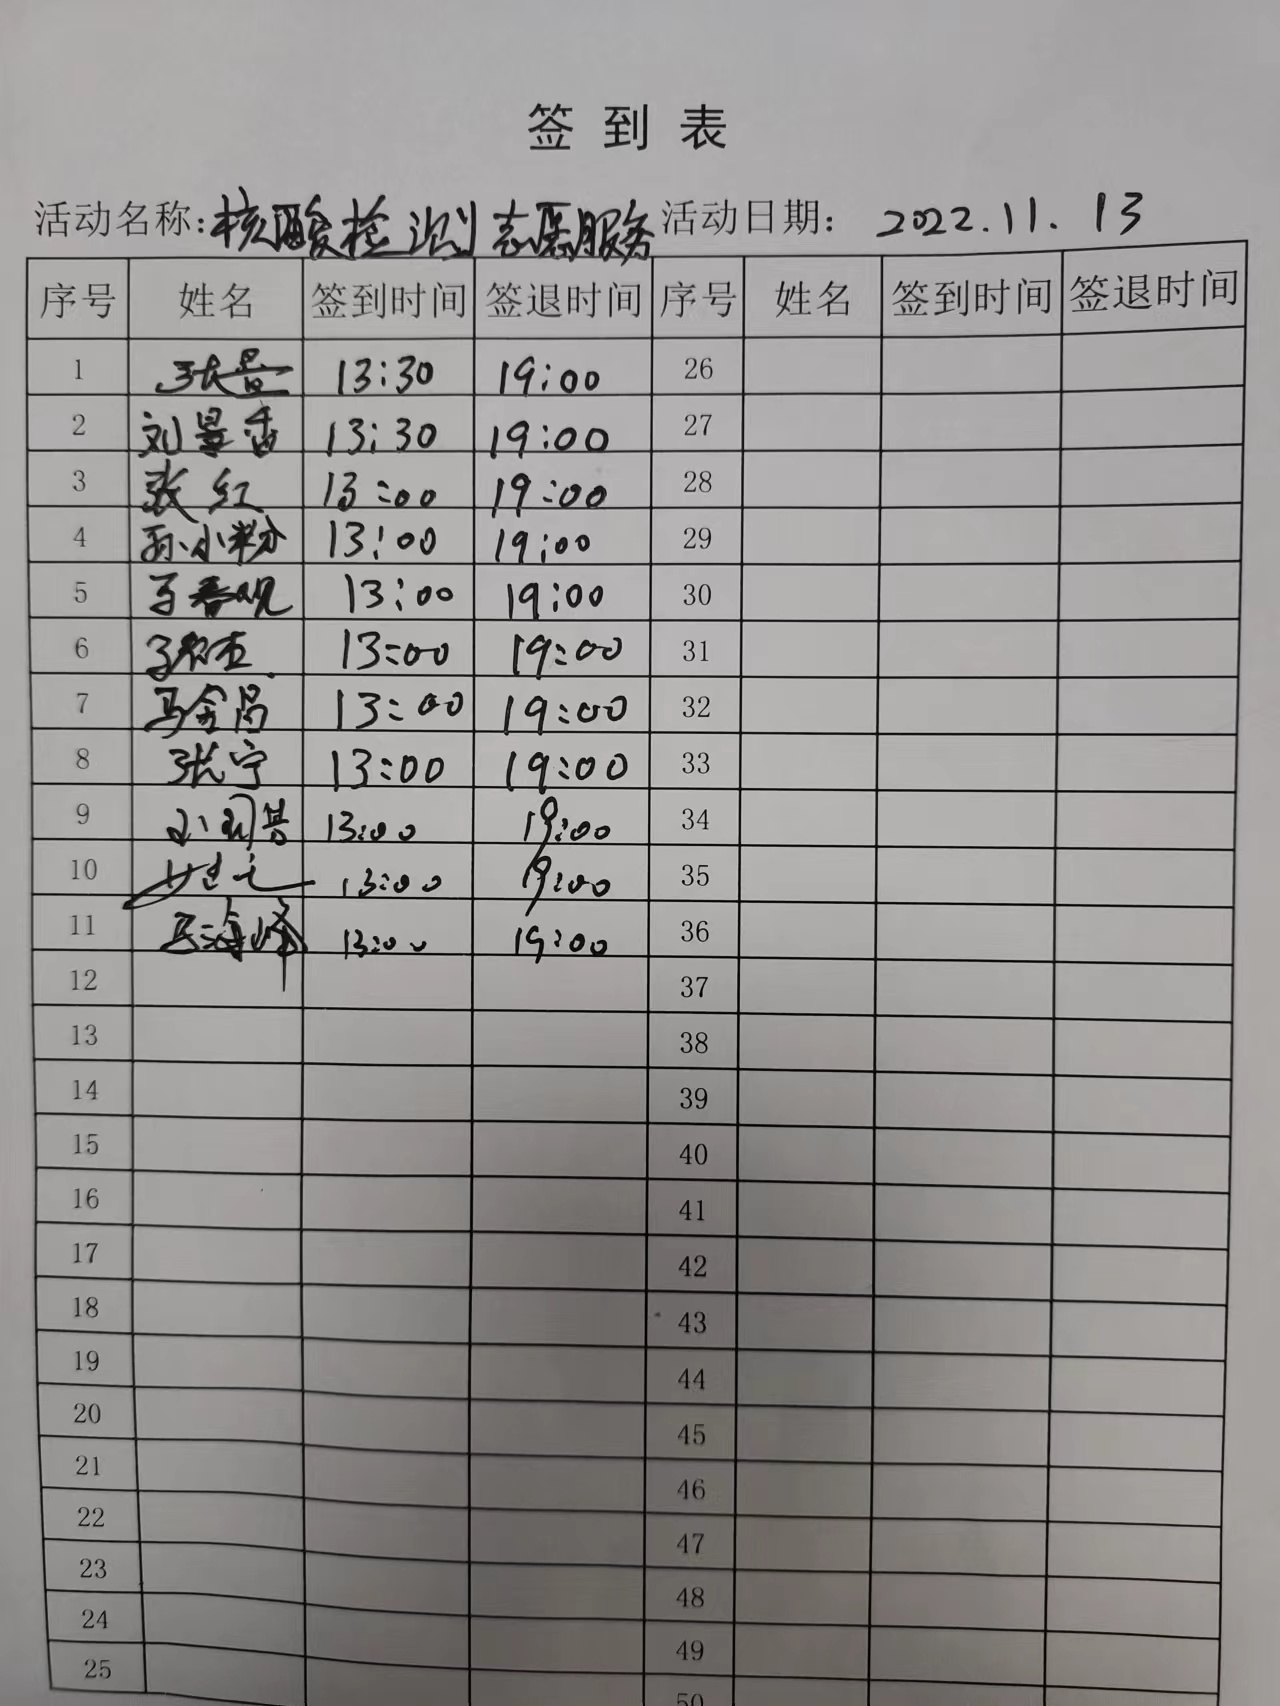 签到表
活动名称：核酸检测志愿服务 活动日期： 2022.11.13
序号 姓名 签到时间 签退时间 序号 姓名 签到时间 签退时间
1 13:30 19:00 26
2 刘景香 13:30 19:00 27
3 张红 13:00 19:00 28
4 孙小粉 13:00 19:00 29
5 13:00 19:00 30
6 13:00 19:00 31
7 马金昌 13:00 19:00 32
8 张宁 13:00 19:00 33
9 13:00 19:00 34
10 13:00 19:00 35
11 王海峰 13:00 19:00 36
12 37
13 38
14 39
15 40
16 41
17 42
18 43
19 44
20 45
21 46
22 47
23 48
24 49
25 50